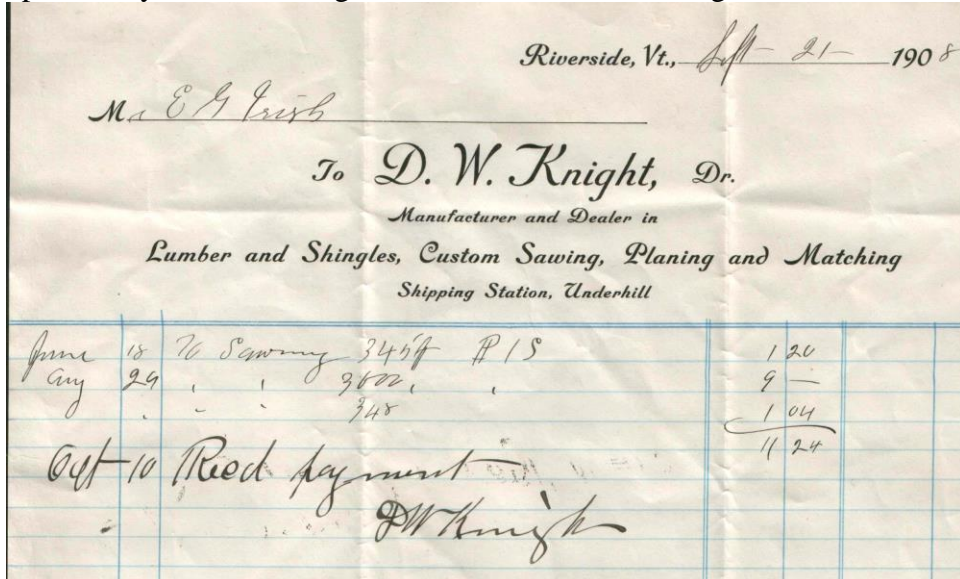 Riverside, Vt., Sept - 21 - 1908
Mr E G Irish
To D. W. Knight, Dr.
Manufacturer and Dealer in
Lumber and Shingles, Custom Sawing, Planing and Matching
Shipping Station, Underhill
June 18 To Sawing 345 ft 1 20
Aug 29 " " " " 9 —
" " " 348 1 04
11 24
10 Recd payment
DW Knight